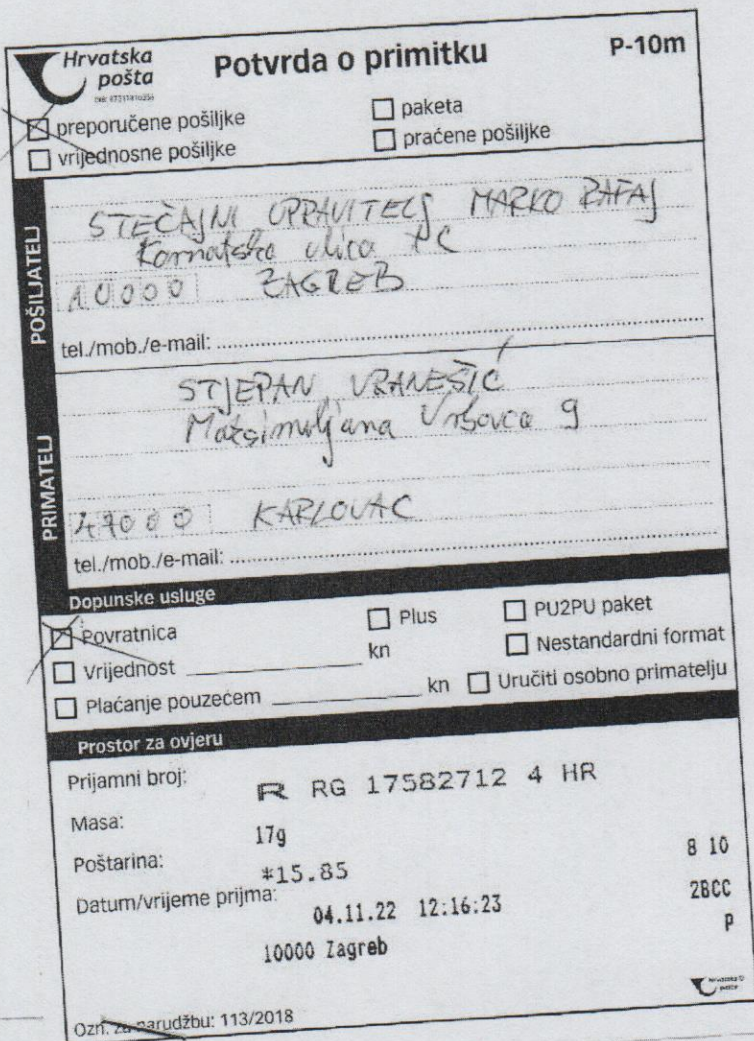 Hrvatska
pošta
Potvrda o primitku
P-10m
preporučene pošiljke
paketa
vrijednosne pošiljke
praćene pošiljke
POŠILJATELJ
STEČAJNI UPRAVITELJ MARKO
Kornatska ulica 1C
10000 ZAGREB
tel./mob./e-mail:
PRIMATELJ
STJEPAN VRANEŠIĆ
Maksimilijana Vrhovca 9
47000 KARLOVAC
tel./mob./e-mail:
Dopunske usluge
Povratnica
Plus
PU2PU paket
Vrijednost kn
Nestandardni format
Plaćanje pouzećem kn
Uručiti osobno primatelju
Prostor za ovjeru
Prijamni broj: R RG 17582712 4 HR
Masa: 17g
Poštarina: *15.85 8 10
Datum/vrijeme prijma: 04.11.22 12:16:23 2BCC
10000 Zagreb P
Ozn. za narudžbu: 113/2018